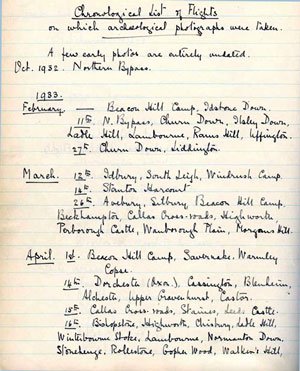 Chronological List of Flights
on which archaeological photographs were taken.
A few early photos are entirely undated.
Oct. 1932. Northern Bypass.
1933.
February — Beacon Hill Camp, Idstone Down.
11th. N. Bypass, Churn Down, Ilsley Down,
Ladle Hill, Lambourne, Rams Hill, Uffington.
27th. Churn Down, Liddington.
March. 12th. Idbury, South Leigh, Windrush Camp.
14th. Stanton Harcourt
26th. Avebury, Silbury, Beacon Hill Camp,
Beckhampton, Callas Cross-roads, Highworth,
Barborough Castle, Wanborough Plain, Morgans Hill.
April. 1st. Beacon Hill Camp, Savernake, Warmley
Copse.
14th. Dorchester (Oxon.), Cassington, Blenheim,
Alchester, Upper Gravenhurst, Castor.
15th. Callas Cross-roads, Staines, Leeds Castle.
16th. Bishopstone, Highworth, Chisbury, Ladle Hill,
Winterbourne Stoke, Lambourne, Normanton Down,
Stonehenge, Rollestone, Gopher Wood, Walker's Hill,